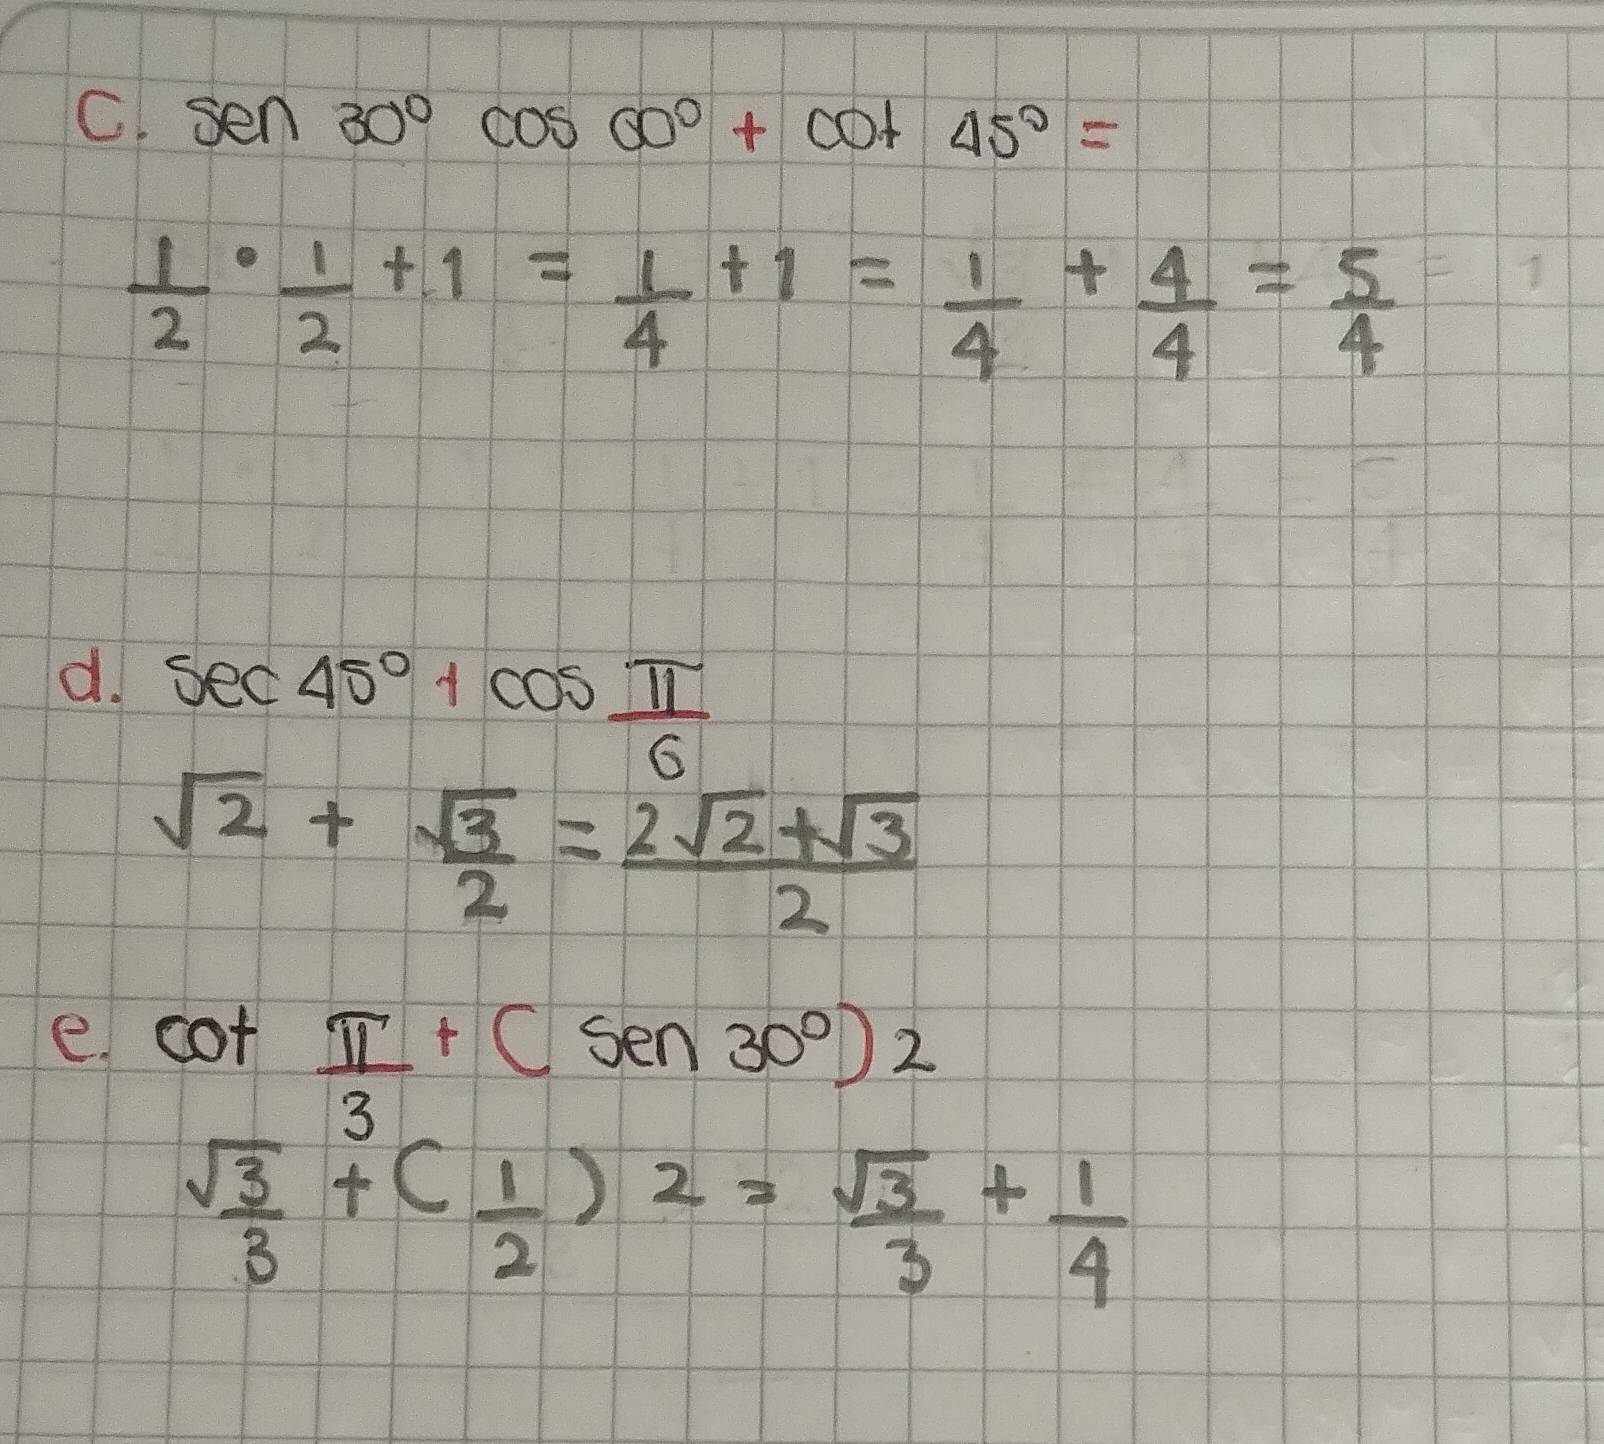 C. sen 30° cos 60° + cot 45° =
1/2 · 1/2 + 1 = 1/4 + 1 = 1/4 + 4/4 = 5/4
d. sec 45° + cos π/6
√2 + √3/2 = 2√2+√3/2
e. cot π/3 + (sen 30°)2
√3/3 + (1/2) 2 = √3/3 + 1/4